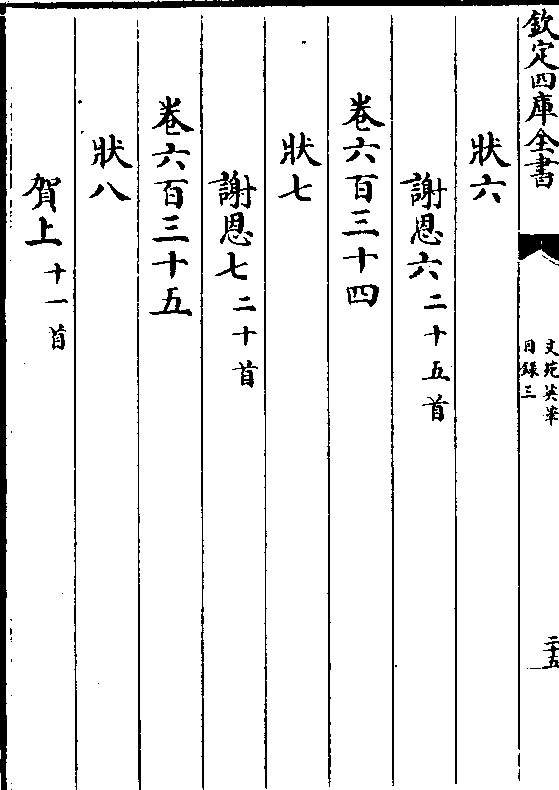 欽定四庫全書
文苑英華
目錄三
二十五
狀六
謝恩六二十五首
卷六百三十四
狀七
謝恩七二十首
卷六百三十五
狀八
賀上十一首